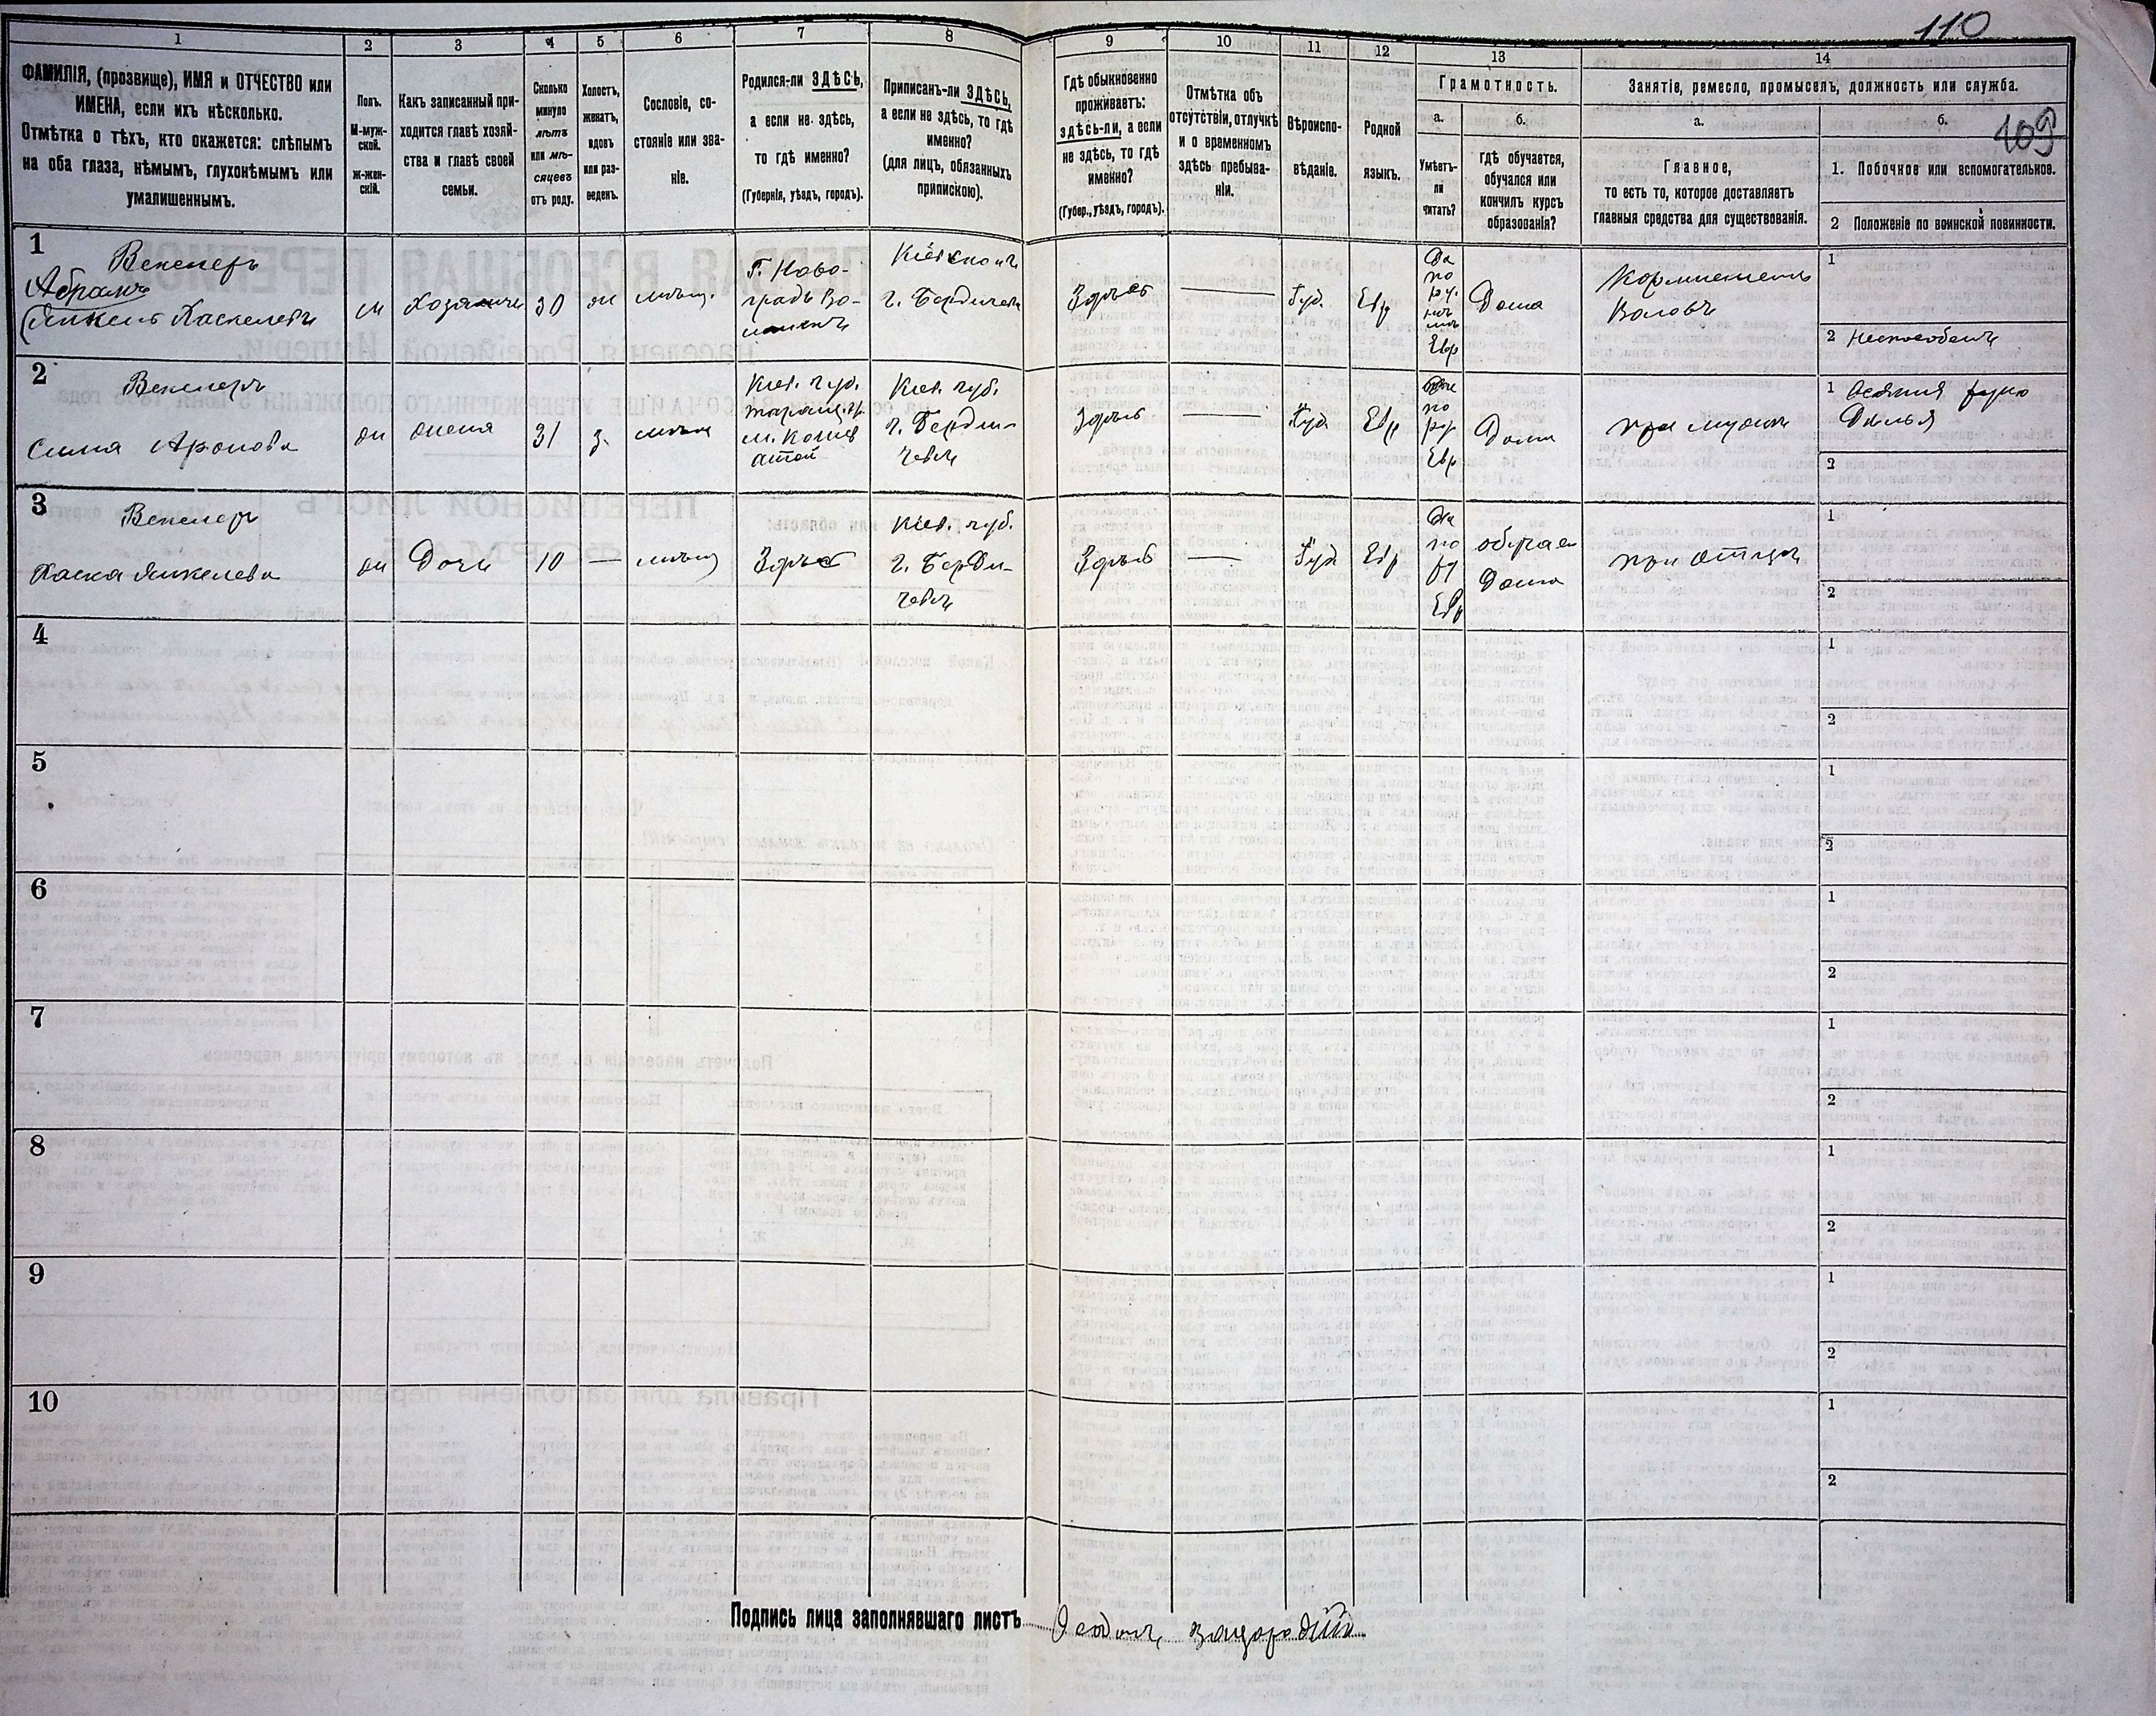 110
109
1
2
3
4
5
6
7
8
9
10
11
12
13
14
ФАМИЛІЯ, (прозвище), ИМЯ и ОТЧЕСТВО или
ИМЕНА, если ихъ нѣсколько.
Отмѣтка о тѣхъ, кто окажется: слѣпымъ
на оба глаза, нѣмымъ, глухонѣмымъ или
умалишеннымъ.
Полъ.
М-муж-
ской.
ж-жен-
скій.
Какъ записанный при-
ходится главѣ хозяй-
ства и главѣ своей
семьи.
Сколько
минуло
лѣтъ
или мѣ-
сяцевъ
отъ роду.
Холостъ,
женатъ,
вдовъ
или раз-
веденъ.
Сословіе, со-
стояніе или зва-
ніе.
Родился-ли ЗДѢСЬ,
а если не здѣсь,
то гдѣ именно?
(Губернія, уѣздъ, городъ).
Приписанъ-ли ЗДѢСЬ,
а если не здѣсь, то гдѣ
именно?
(для лицъ, обязанныхъ
припискою).
Гдѣ обыкновенно
проживаетъ:
здѣсь-ли, а если
не здѣсь, то гдѣ
именно?
(Губер., уѣздъ, городъ).
Отмѣтка объ
отсутствіи, отлучкѣ
и о временномъ
здѣсь пребыва-
ніи.
Вѣроиспо-
вѣданіе.
Родной
языкъ.
Грамотность.
а.
Умѣетъ-
ли
читать?
б.
гдѣ обучается,
обучался или
кончилъ курсъ
образованія?
Занятіе, ремесло, промыселъ, должность или служба.
а.
Главное,
то есть то, которое доставляетъ
главныя средства для существованія.
б.
1. Побочное или вспомогательное.
2 Положеніе по воинской повинности.
1
Векслеръ
Абрамъ
(Янкель Хаскелевъ
м
Хозяинъ
30
ж
мѣщ.
Г. Ново-
градъ Во-
лынск
г. Бердичева
Здѣсь
Іуд.
Евр
Да
по
Евр
Дома
Воловъ
1
2 Неспособенъ
2
Векслеръ
Симя Аронова
жена
31
з.
Кіев. губ.
Таращ. у.
м.
Кіев. губ.
г. Берди-
чевъ
Здѣсь
Іуд
Евр
по
Евр
Дома
при мужѣ
1
2
3
Векслеръ
Хаска Янкелева
Дочь
10
мѣщ
Здѣсь
Кіев. губ.
г. Берди-
чевъ
Здѣсь
Іуд
Евр
Да
по
Евр
обучает
Дома
при отцѣ
1
2
4
1
2
5
1
2
6
1
2
7
1
2
8
1
2
9
1
2
10
1
2
Подпись лица заполнявшаго листъ